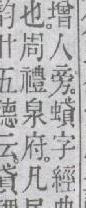 增人旁。蟘字經
也。周禮泉府。凡
廿五德云。貸